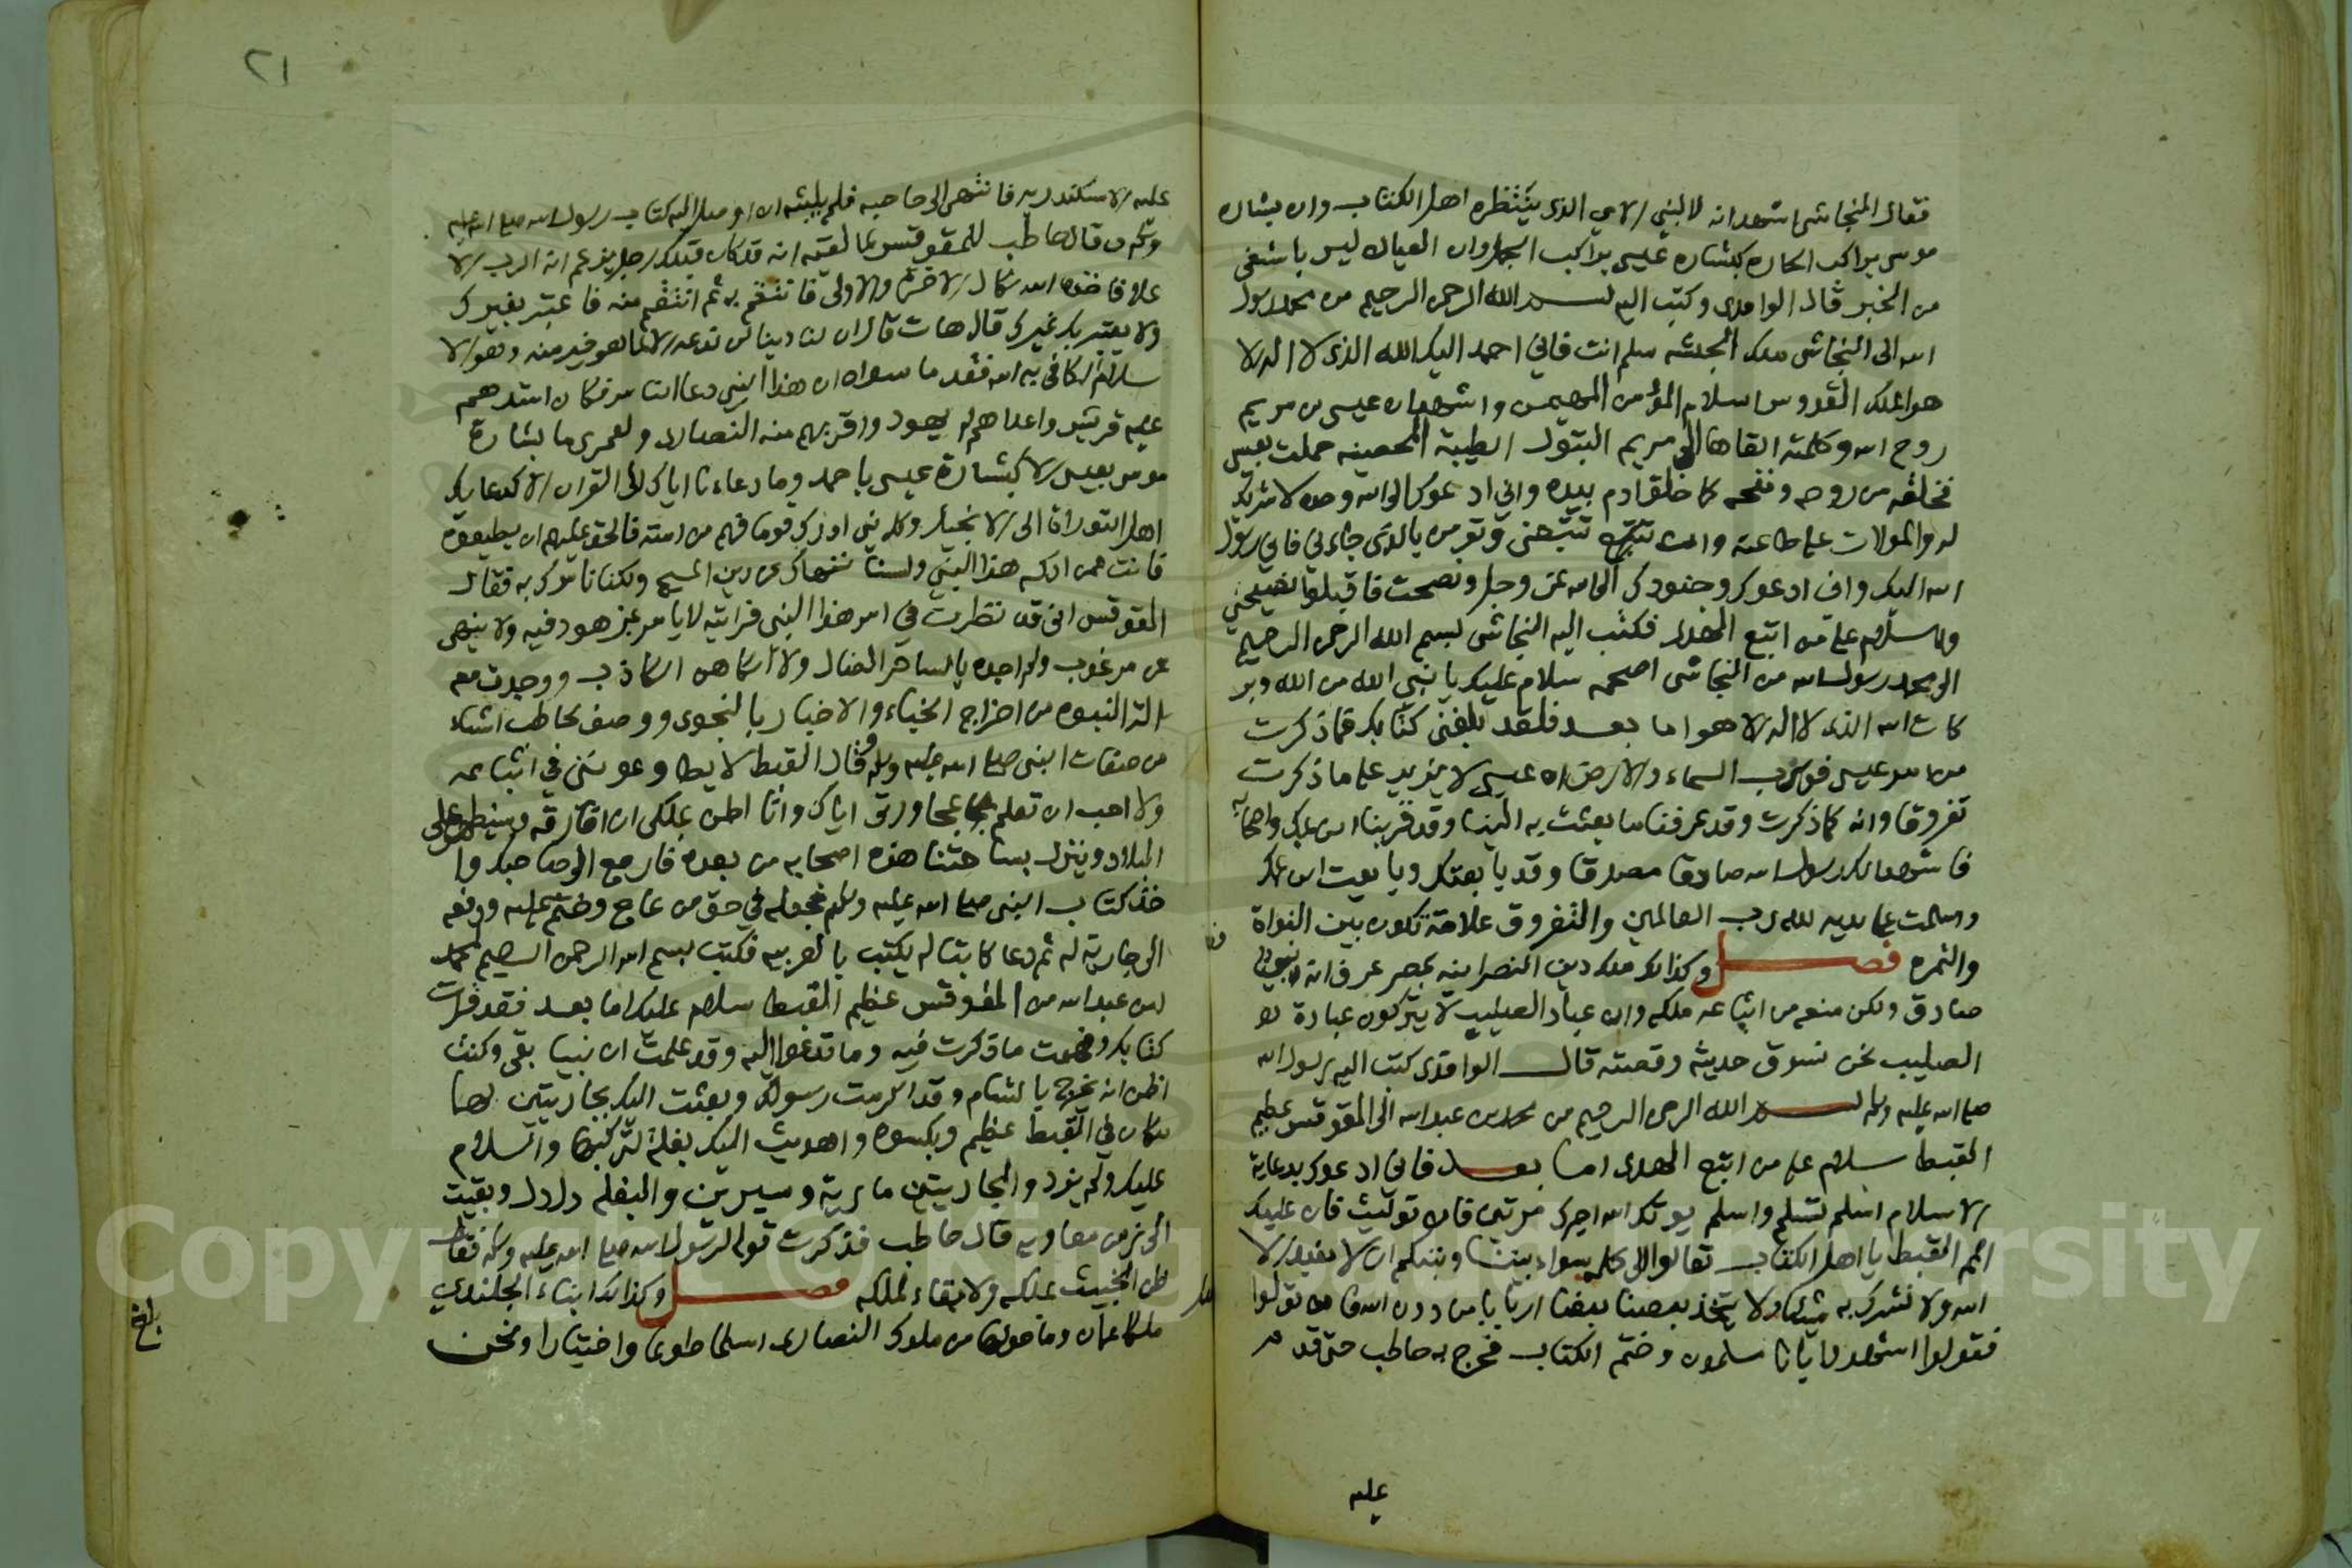 فقال النجاشي اشهد انه لالنبي الامي الذي ينتظره اهل الكتاب وان بشاره
موسى براكب الحمار كبشارة عيسى براكب الجمل وان العيان ليس باشفى
من الخبر قال الواقدي وكتب اليه بسم الله الرحمن الرحيم من محمد رسول
الله الى النجاشي ملك الحبشه سلم انت فاني احمد اليك الله الذي لا اله الا
هو الملك القدوس السلام المؤمن المهيمن واشهد ان عيسى بن مريم
روح الله وكلمته القاها الى مريم البتول الطيبة المحصينه حملت بعيسى
فخلقه من روحه ونفخه كما خلق ادم بيده واني ادعوك الى الله وحده لا شريك
له والموالات على طاعته وان تتبعني وتؤمن بالذي جاءني فاني رسول
الله اليك واني ادعوك وجنودك الى الله عز وجل ونصحت فاقبلوا نصيحتي
والسلام على من اتبع الهدى فكتب اليه النجاشي بسم الله الرحمن الرحيم
الى محمد رسول الله من النجاشي اصحمه سلام عليك يا نبي الله من الله وبر
كات الله الذي لا اله الا هو اما بعد فلقد بلغني كتابك فما ذكرت
من امر عيسى فورب السماء والارض ان عيسى لا يزيد على ما ذكرت
تفروقا وانه كما ذكرت وقد عرفنا ما بعثت به الينا وقد قربنا ابن عمك واصحابه
فاشهد انك رسول الله صادقا مصدقا وقد بايعتك وبايعت ابن عمك
واسلمت على يديه لله رب العالمين والثفروق علامة تكون بين النواة
والتمره فصل وكذلك ملك دين النصرانيه بمصر عرف انه نبي
صادق ولكن منعه من اتباعه ملكه وان عباد الصليب لا يتركون عبادة
الصليب نحن نسوق حديثه وقصته قال الواقدي كتب اليه رسول الله
صلى الله عليه وسلم بسم الله الرحمن الرحيم من محمد بن عبد الله الى المقوقس عظيم
القبط سلام على من اتبع الهدى اما بعد فاني ادعوك بدعاية
الاسلام اسلم تسلم واسلم يوتك الله اجرك مرتين فان توليت فان عليك
اثم القبط يا اهل الكتاب تعالوا الى كلمه سواء بيننا وبينكم ان لا نعبد الا
الله ولا نشرك به شيئا ولا يتخذ بعضنا بعضا اربابا من دون الله فان تولوا
فقولوا اشهدوا بانا مسلمون وختم الكتاب فخرج به حاطب حتى قدم
عليه
٢١
عليه الاسكندريه فانتهى الى حاجبه فلم يلبثه ان اوصل اليه كتاب رسول الله صلى الله عليه
وسلم وقال حاطب للمقوقس لما لقيه انه قد كان قبلك رجل يزعم انه الرب الا
على فاخذه الله نكال الاخرة والاولى فانتقم به ثم انتقم منه فاعتبر بغيرك
ولا يعتبر بك غيرك قال هات قال ان لنا دينا لن ندعه الا لما هو خير منه وهو الا
سلام الكافي به الله فقد ما سواه ان هذا النبي دعا الناس فكان اشدهم
عليه قريش واعداهم له يهود واقربهم منه النصارى ولعمري ما بشارة
موسى بعيسى الا كبشارة عيسى باحمد وما دعاءنا اياك الى القران الا كدعايك
اهل التوراة الى الانجيل وكل نبي ادرك قوما فهم من امته فالحق عليهم ان يطيعوه
فانت ممن ادركه هذا النبي ولسنا ننهاك عن دين المسيح ولكنا نامرك به فقال
المقوقس اني قد نظرت في امر هذا النبي فرايته لا يامر بمزهود فيه ولا ينهى
عن مرغوب ولم اجده بالساحر الضال ولا الكاهن الكاذب ووجدت معه
الة النبوه من اخراج الخباء والاخبار بالنجوى ووصف لحاطب اشياء
من صفات النبي صلى الله عليه وسلم وقال القبط لا يطاوعونني في اتباعه
ولا احب ان تعلم بمحاورتي اياك وانا اظن بملكي ان افارقه وسيظهر على
البلاد وينزل بساحتنا هذه اصحابه من بعده فارجع الى صاحبك وا
خذ كتاب النبي صلى الله عليه وسلم فجعله في حق من عاج وختم عليه ودفعه
الى جارية له ثم دعا كاتبا له يكتب بالعربيه فكتب بسم الله الرحمن الرحيم لمحمد
بن عبد الله من المقوقس عظيم القبط سلام عليك اما بعد فقد قرات
كتابك وفهمت ما ذكرت فيه وما تدعوا اليه وقد علمت ان نبيا بقي وكنت
اظن انه يخرج بالشام وقد اكرمت رسولك وبعثت اليك بجاريتين لهما
مكان في القبط عظيم وبكسوه واهديت اليك بغلة لتركبها والسلام
عليك ولم يزد والجاريتين مارية وسيرين والبغله دلدل وبقيت
الى زمن معاويه قال حاطب فذكرت قوله لرسول الله صلى الله عليه وسلم فقال
ظن الخبيث بملكه ولا بقاء لملكه فصل وكذلك ابناء الجلندي
ملكا عمان وما حولها من ملوك النصارى اسلما طوعا واختيارا ونحن
بلغ
Copyright © King Saud University